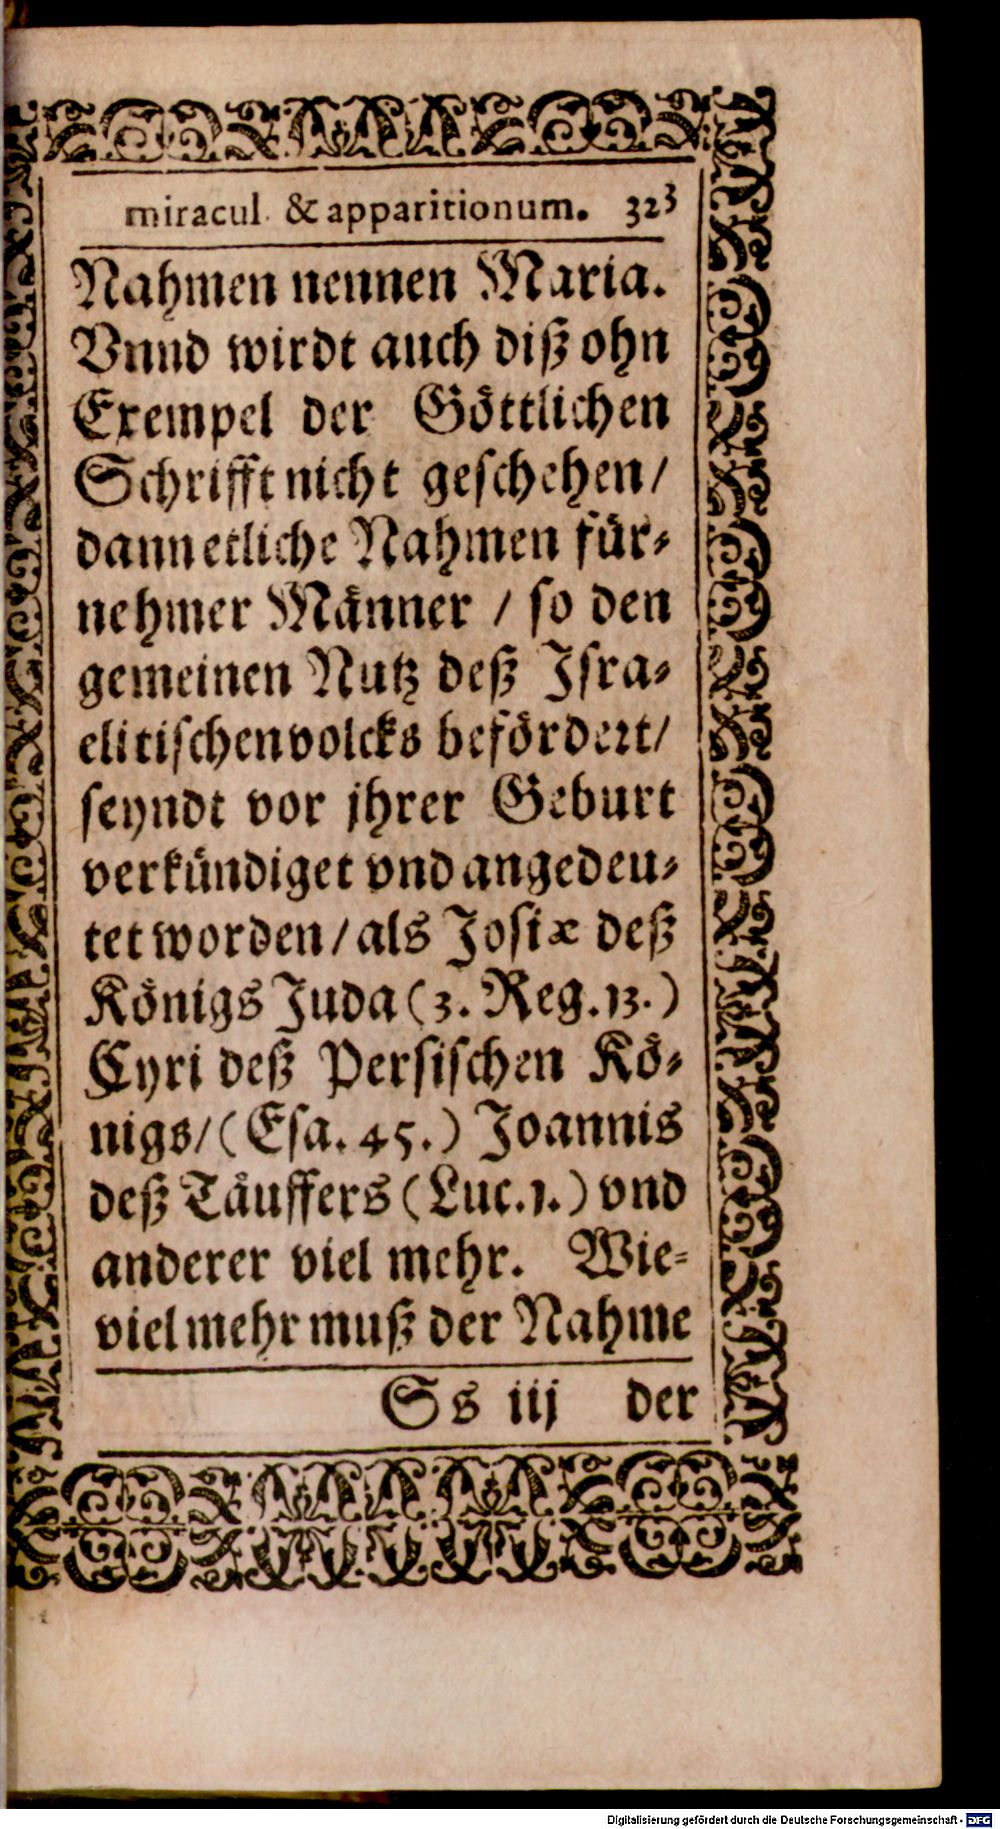 miracul. & apparitionum. 323
Nahmen nennen Maria.
Vnnd wirdt auch diß ohn
Exempel der Göttlichen
Schrifft nicht geschehen/
dann etliche Nahmen für-
nehmer Männer / so den
gemeinen Nutz deß Isra-
elitischen volcks befördert/
seyndt vor jhrer Geburt
verkündiget vnd angedeu-
tet worden/ als Josiæ deß
Königs Juda (3. Reg. 13.)
Cyri deß Persischen Kö-
nigs/ (Esa. 45.) Joannis
deß Täuffers (Luc. 1.) vnd
anderer viel mehr. Wie-
viel mehr muß der Nahme
Ss iij der
Digitalisierung gefördert durch die Deutsche Forschungsgemeinschaft - DFG